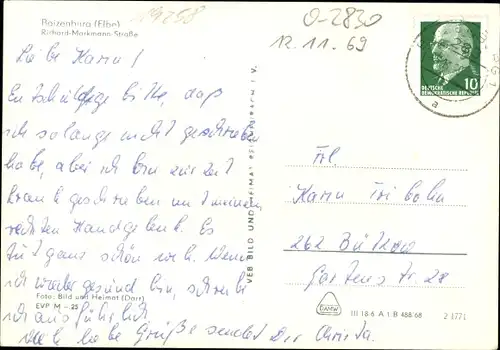 Boizenburg (Elbe)
Richard-Markmann-Straße
N9258
O-2830
12.11.69
Liebe Karin!
Entschuldige bitte, daß
ich solange nicht geschrieben
habe, aber ich bin zur Zeit
krank geschrieben mit meinem
rechten Handgelenk. Es
tut ganz schön weh. Wenn
ich wieder gesund bin, schreibe
ich ausführlich
Viele liebe Grüße sendet Dir Christa.
Foto: Bild und Heimat (Darr)
EVP M –25
VEB BILD UND HEIMAT REICHENBACH I. V.
10
DEUTSCHE
DEMOKRATISCHE REPUBLIK
a
Frl.
Karin
262 Bützow
Str 28
III 18-6 A 1 B 488/68
2 1771